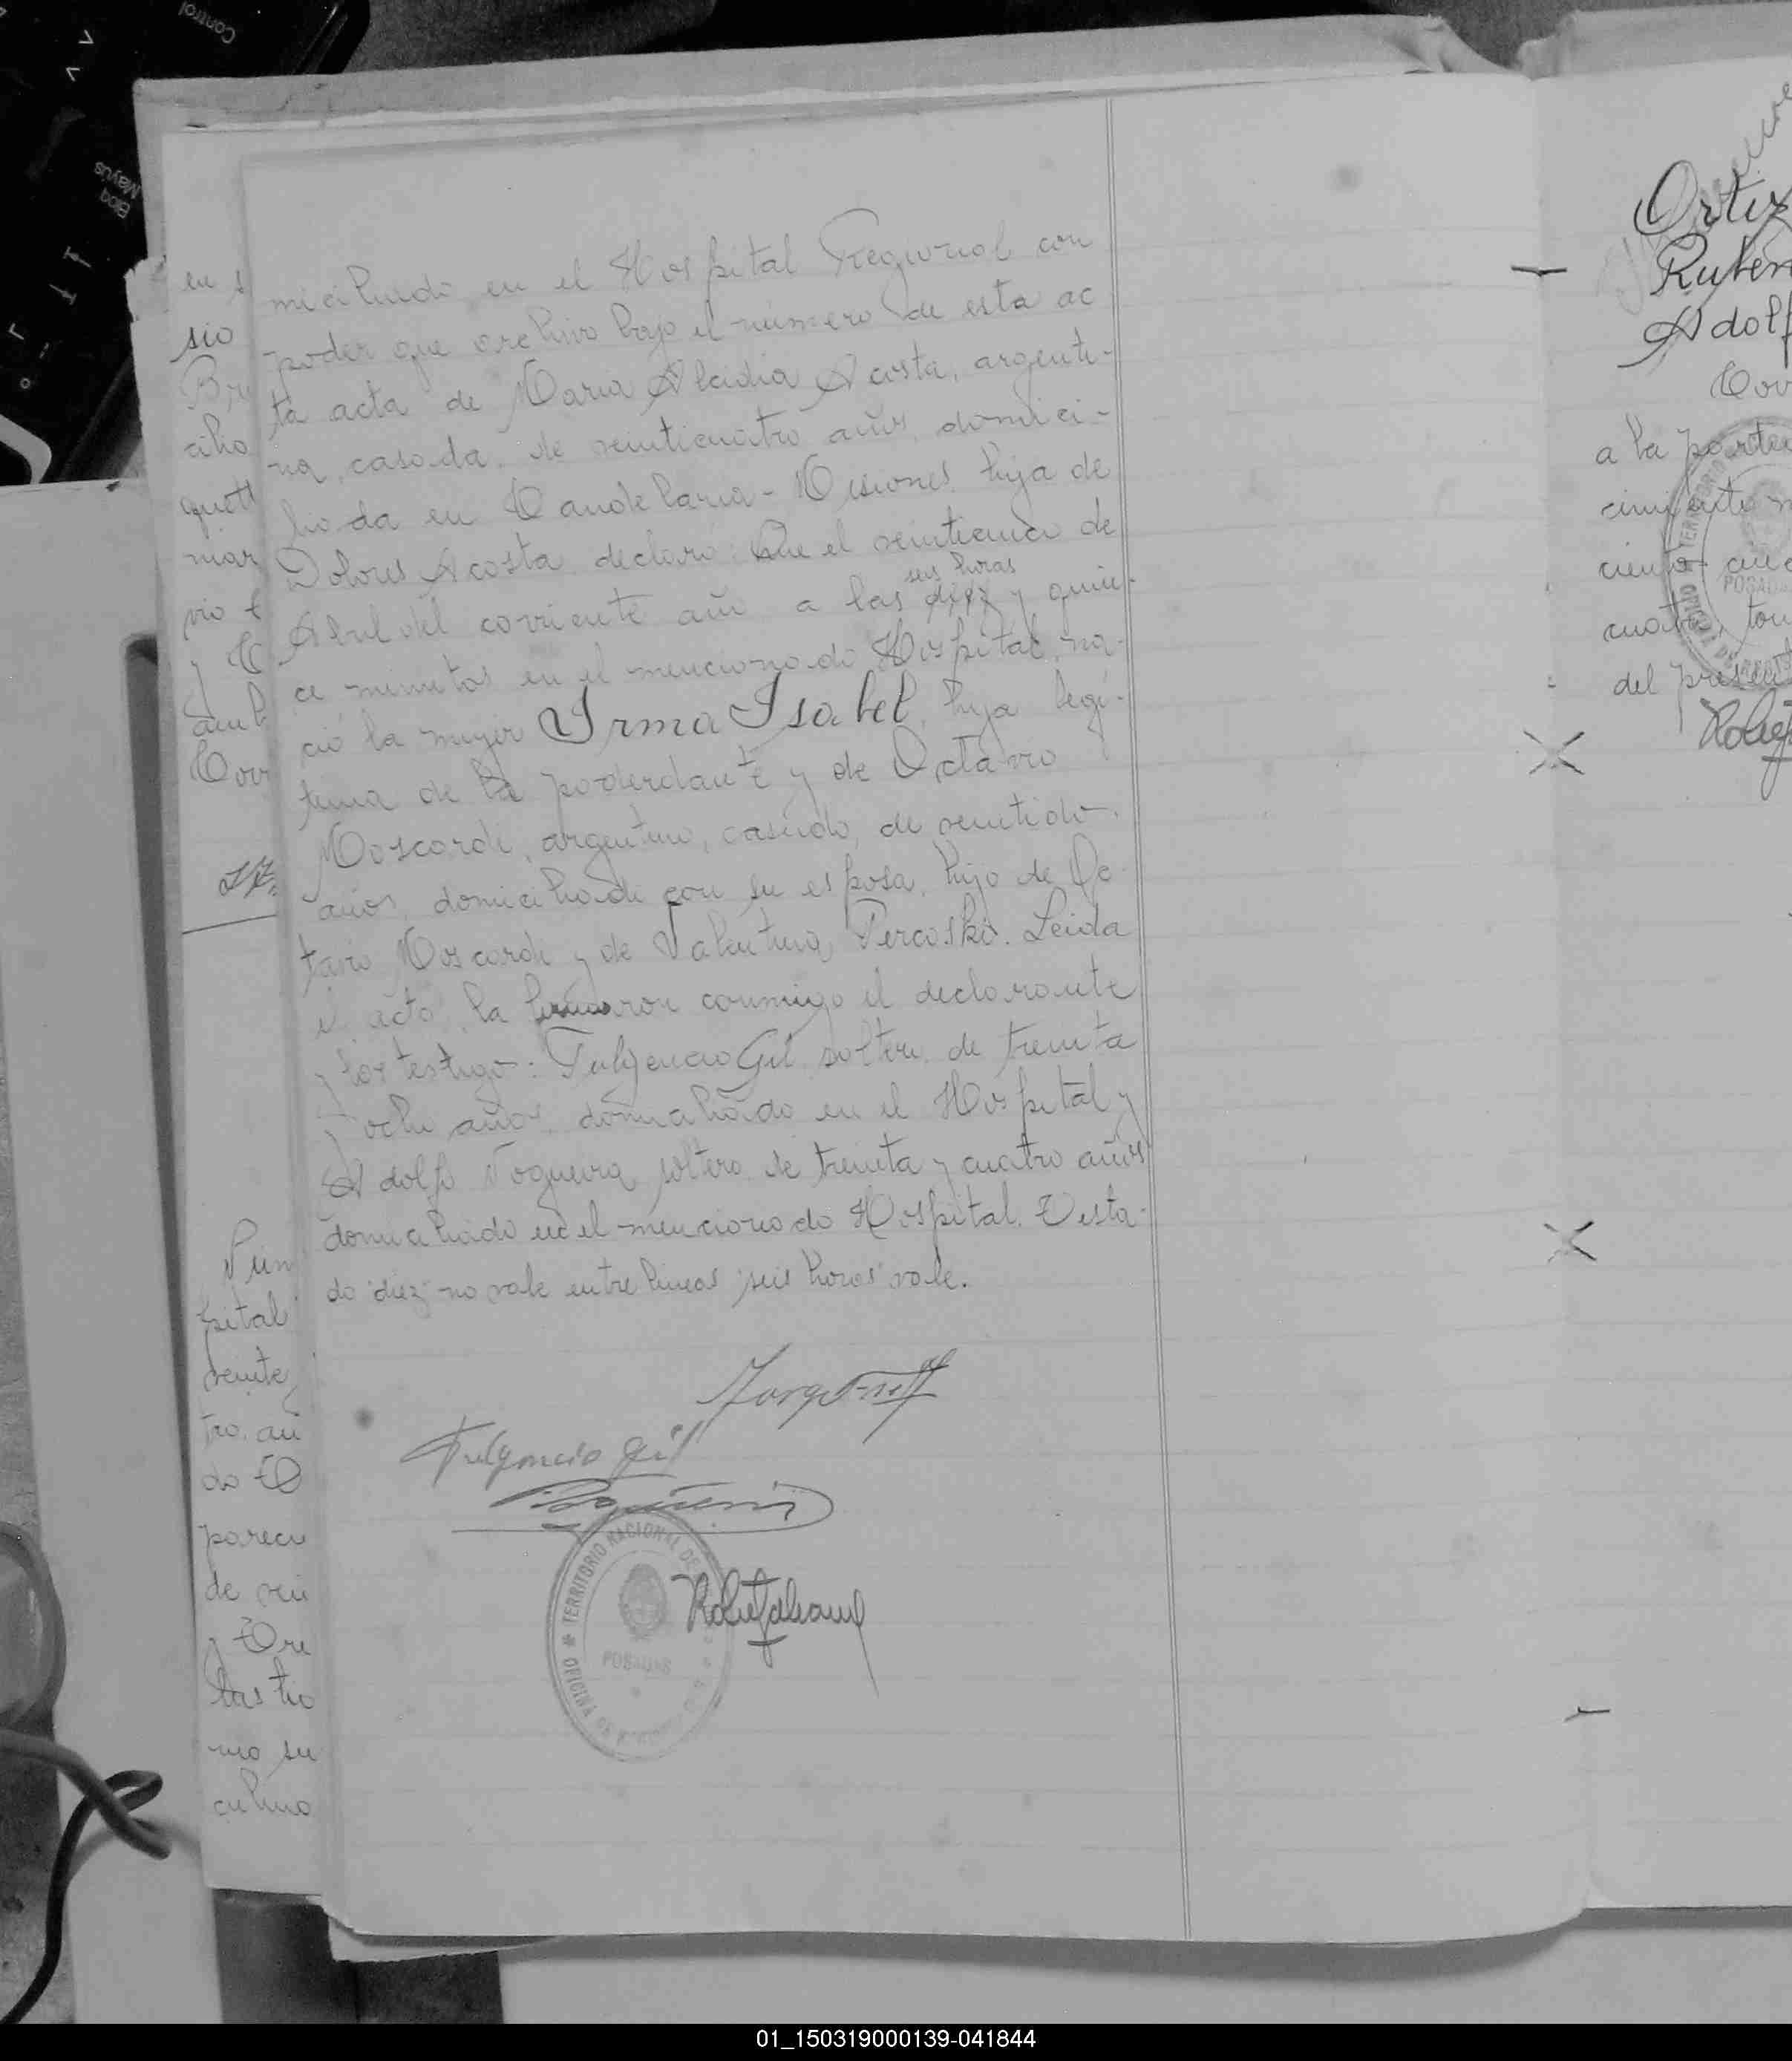 Control
Bloq
Mayús
miciliado en el Hospital Regional con
poder que archivo bajo el número de esta ac
ta acta de Maria Alcidia Acosta, argenti-
na, casada, de veinticuatro años, domici-
liada en Candelaria - Misiones, hija de
Dolores Acosta, declaró: Que el veinticinco de
seis horas
Abril del corriente año a las diez y quin-
ce minutos en el mencionado Hospital, na-
ció la mujer Irma Isabel, hija legí-
tima de la poderdante y de Octavio
Moscardi, argentino, casado, de veintidos
años, domiciliado con su esposa, hijo de Oc-
tavio Moscardi y de Valentina Percoski. Leida
el acta, la firmaron conmigo el declarante
y los testigos: Fulgencio Gil, soltero, de treinta
y ocho años, domiciliado en el Hospital y
Adolfo Nogueira, soltero, de treinta y cuatro años
domiciliado en el mencionado Hospital. Testa-
do "diez" no vale entre lineas "seis horas" vale.
Fulgencio Gil
TERRITORIO NACIONAL DE
POSADAS
OFICINA DE
en
sio
ciho
mar
pital
veinte
tro, añ
do
parecu
de vei
y
las
mo su
culino
Ortiz
Ruben
Adolf
a la parte
cimiento
ciento
cuatro, tom
del present
POSADAS
01_150319000139-041844